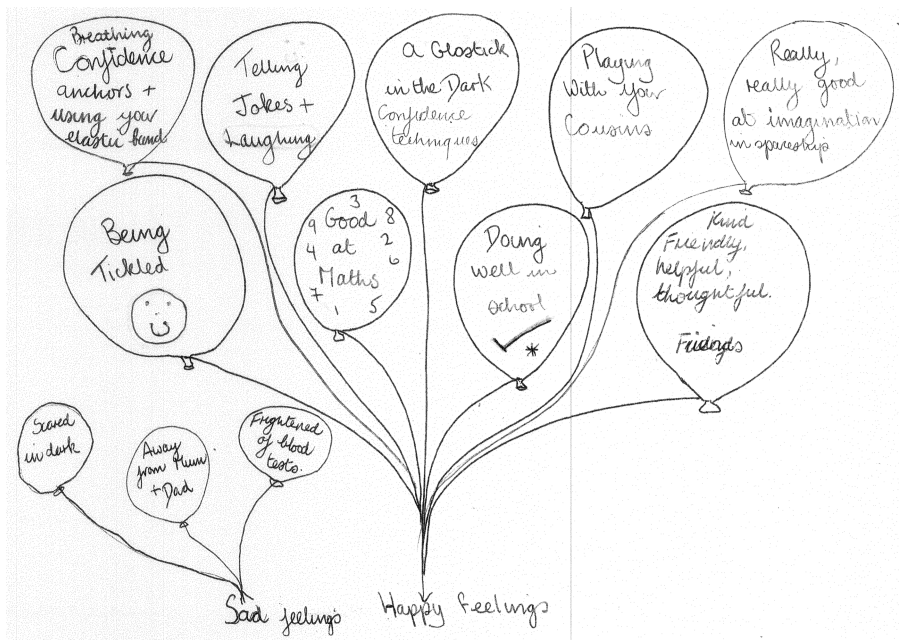 Breathing
Confidence
anchors +
using your
elastic band
Telling
Jokes +
Laughing
a Glostick
in the Dark
Confidence
techniques
Playing
With your
Cousins
Really,
really good
at imagination
in spaceship
Being
Tickled
3
9 Good 8
4 at 2
6
Maths
7
1 5
Doing
well in
school
Kind
Friendly,
helpful,
thoughtful.
Friends
Scared
in dark
Away
from Mum
+ Dad
Frightened
of blood
tests.
Sad feelings
Happy feelings